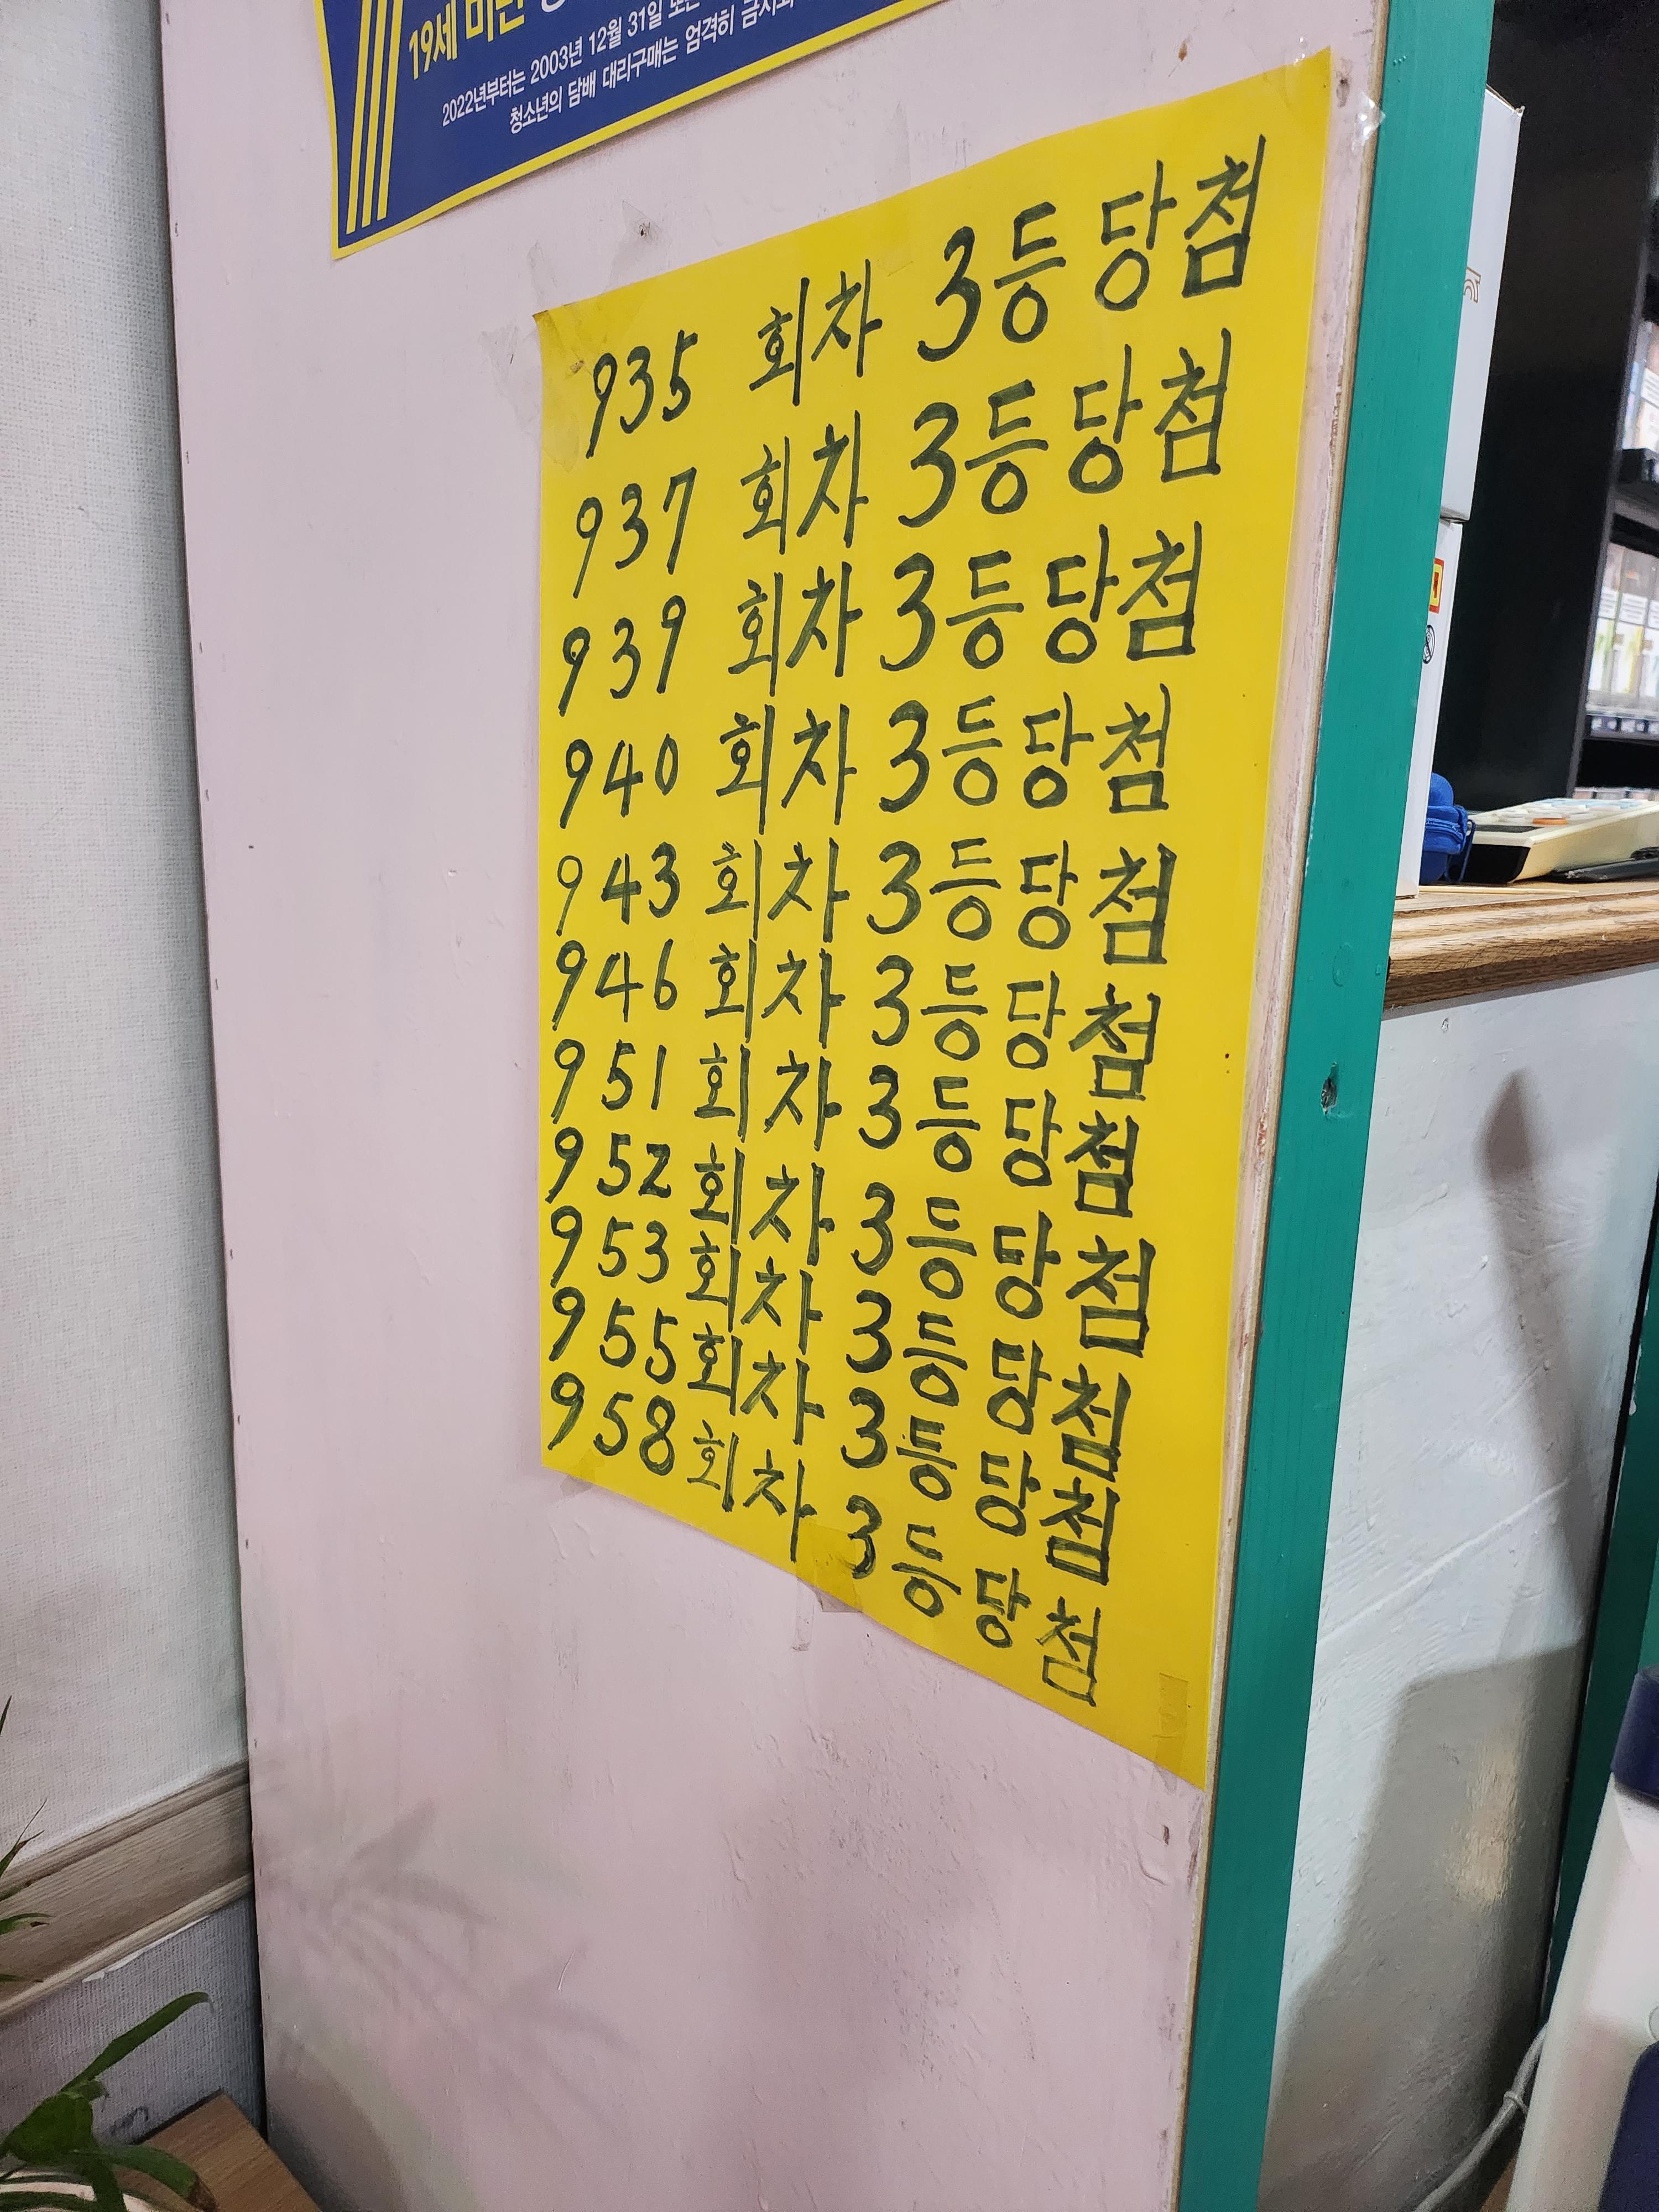 19세 미만
2022년부터는 2003년 12월 31일
청소년의 담배 대리구매는 엄격히 금지
935 회차 3등 당첨
937 회차 3등 당첨
939 회차 3등 당첨
940 회차 3등 당첨
943 회차 3등 당첨
946 회차 3등 당첨
951 회차 3등 당첨
952 회차 3등 당첨
953 회차 3등 당첨
955 회차 3등 당첨
958 회차 3등 당첨